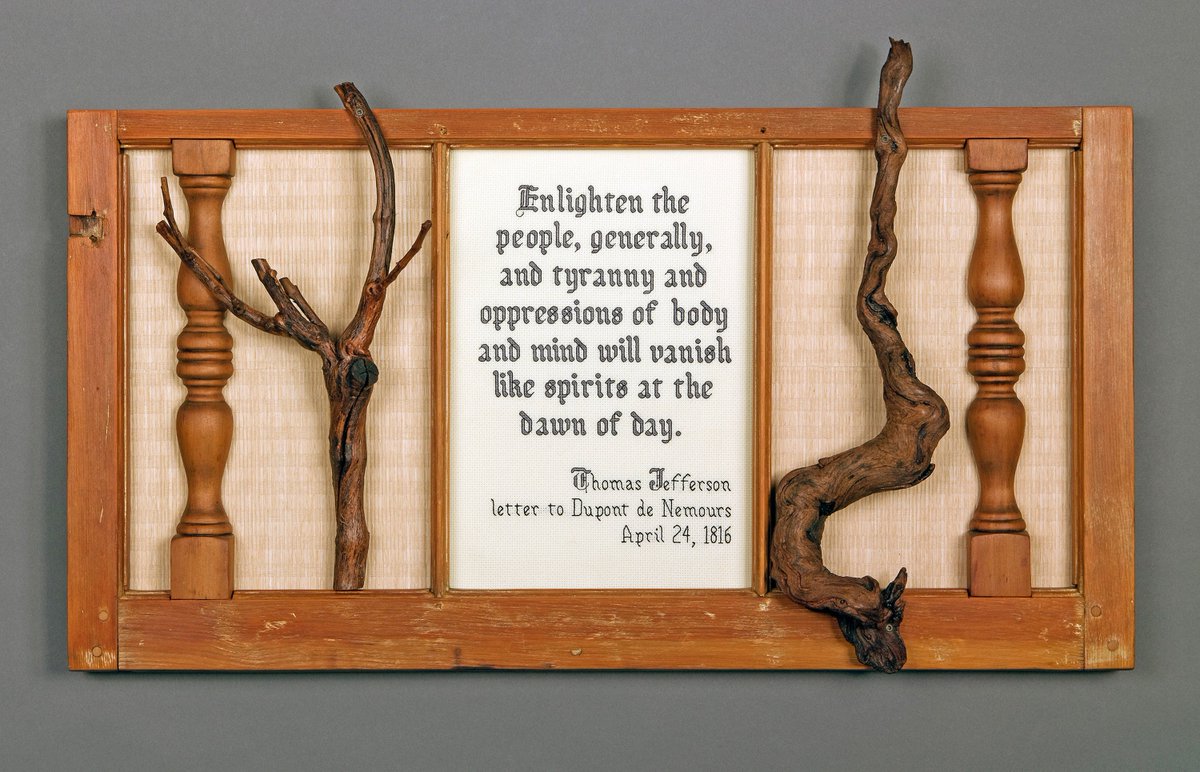 Enlighten the
people, generally,
and tyranny and
oppressions of body
and mind will vanish
like spirits at the
dawn of day.
Thomas Jefferson
letter to Dupont de Nemours
April 24, 1816